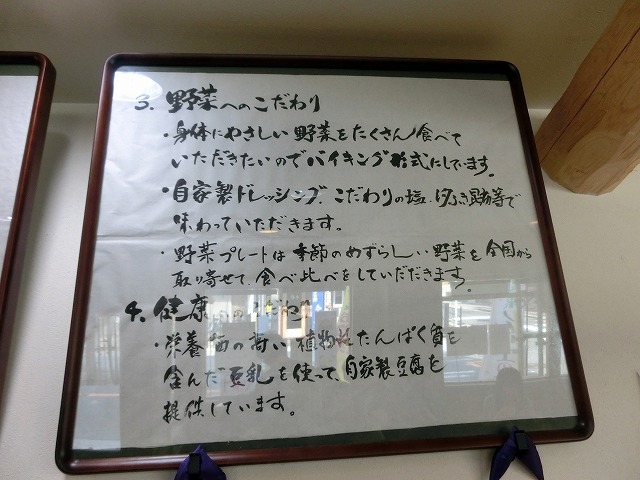 3. 野菜へのこだわり
・身体にやさしい野菜をたくさん食べて
いただきたいのでバイキング形式にしています。
・自家製ドレッシング、こだわりの塩、等で
味わっていただきます。
・野菜プレートは季節のめずらしい野菜を全国から
取り寄せて、食べ比べをしていただきます。
4. 健康へのこだわり
・栄養価の高い植物性たんぱく質を
含んだ豆乳を使って、自家製豆腐を
提供しています。